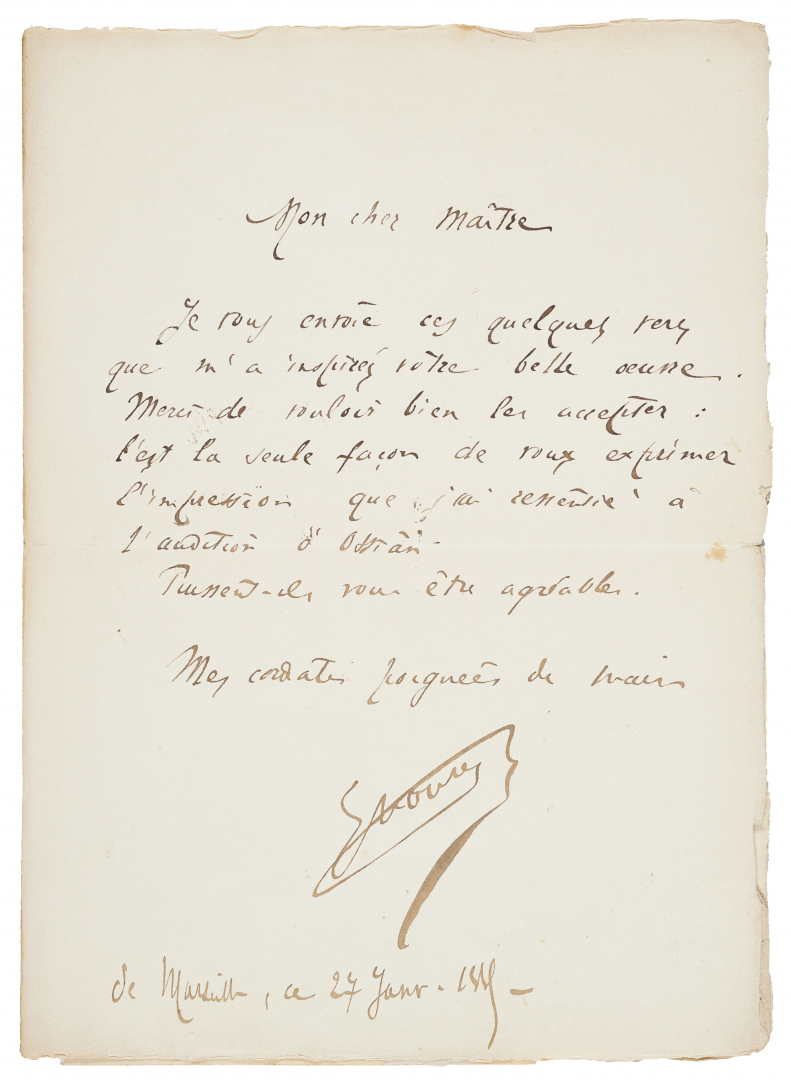 Mon cher Maître
Je vous envoie ces quelques vers
que m'a inspirés vôtre belle oeuvre.
Merci de vouloir bien les accepter :
c'est la seule façon de vous exprimer
l'impression que j'ai ressentie à
l'audition d'Ossian.
Puissent-ils vous être agréables.
Mes cordiales poignées de main
de Marseille, ce 27 Janv.